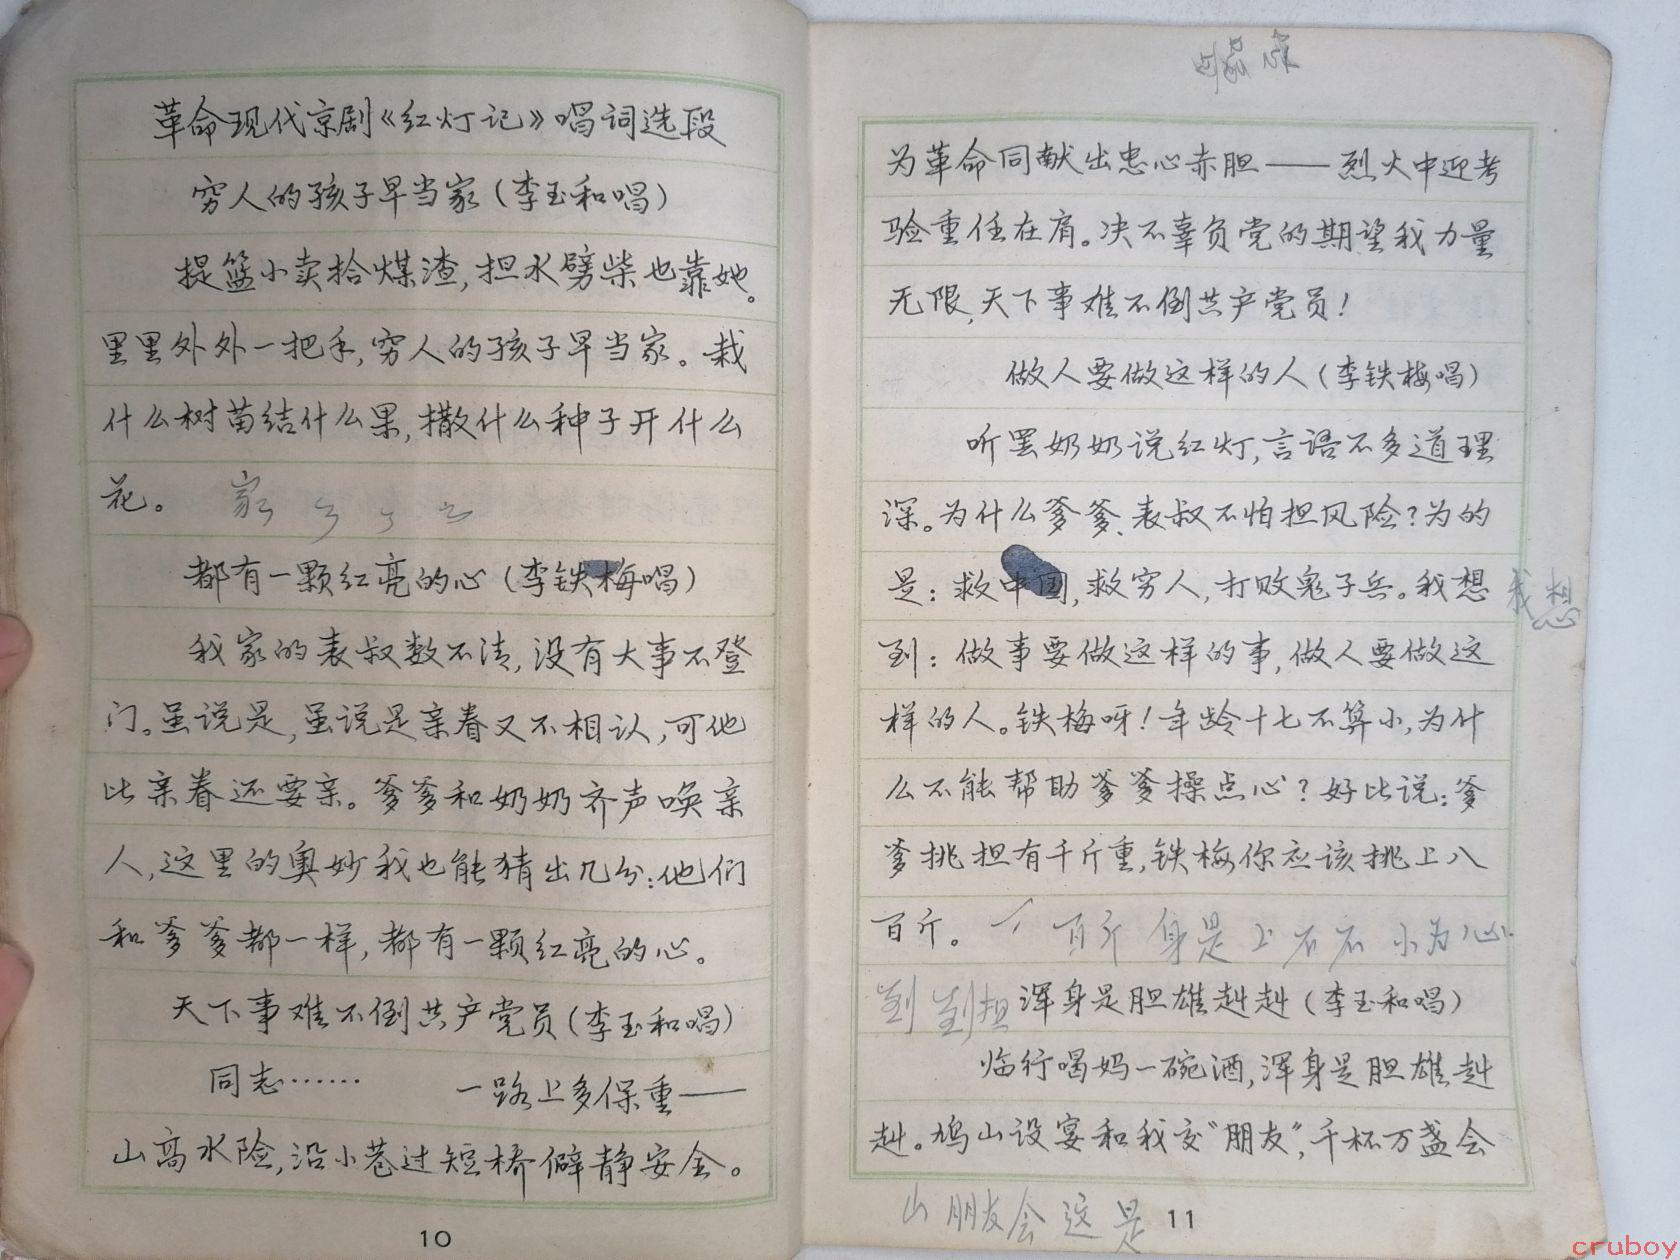 革命现代京剧《红灯记》唱词选段
穷人的孩子早当家(李玉和唱)
提篮小卖拾煤渣,担水劈柴也靠她。
里里外外一把手,穷人的孩子早当家。栽
什么树苗结什么果,撒什么种子开什么
花。 家
都有一颗红亮的心(李铁梅唱)
我家的表叔数不清,没有大事不登
门。虽说是,虽说是亲眷又不相认,可他
比亲眷还要亲。爹爹和奶奶齐声唤亲
人,这里的奥妙我也能猜出几分:他们
和爹爹都一样,都有一颗红亮的心。
天下事难不倒共产党员(李玉和唱)
同志…… 一路上多保重——
山高水险,沿小巷过短桥僻静安全。
10
为革命同献出忠心赤胆——烈火中迎考
验重任在肩。决不辜负党的期望我力量
无限,天下事难不倒共产党员!
做人要做这样的人(李铁梅唱)
听罢奶奶说红灯,言语不多道理
深。为什么爹爹、表叔不怕担风险?为的
是:救中国,救穷人,打败鬼子兵。我想 我想
到:做事要做这样的事,做人要做这
样的人。铁梅呀!年龄十七不算小,为什
么不能帮助爹爹操点心?好比说:爹
爹挑担有千斤重,铁梅你应该挑上八
百斤。 百斤 身是上石石 小为心
到 到担 浑身是胆雄赳赳(李玉和唱)
临行喝妈一碗酒,浑身是胆雄赳
赳。鸠山设宴和我交“朋友”,千杯万盏会
山朋友会这是
11
cruboy